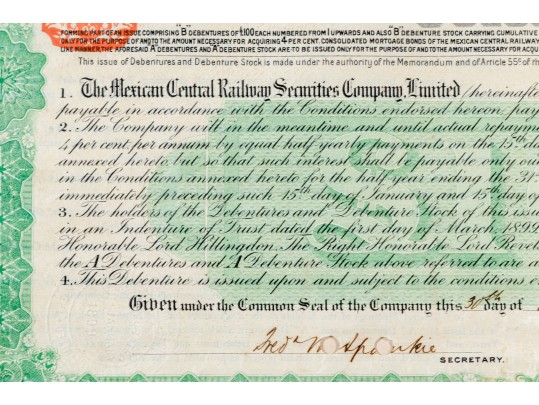 FORMING PART OF AN ISSUE COMPRISING "B" DEBENTURES OF £100 EACH NUMBERED FROM 1 UPWARDS AND ALSO "B" DEBENTURE STOCK CARRYING CUMULATIVE
ONLY FOR THE PURPOSE OF AND TO THE AMOUNT NECESSARY FOR ACQUIRING 4 PER CENT. CONSOLIDATED MORTGAGE BONDS OF THE MEXICAN CENTRAL RAILWAY
LIKE MANNER, THE AFORESAID "A" DEBENTURES AND "A" DEBENTURE STOCK ARE TO BE ISSUED ONLY FOR THE PURPOSE OF AND TO THE AMOUNT NECESSARY FOR ACQU
This issue of Debentures and Debenture Stock is made under the authority of the Memorandum and of Article 55 of th
1. The Mexican Central Railway Securities Company, Limited (hereinafte
payable in accordance with the Conditions endorsed hereon, pay
2. The Company will in the meantime and until actual repaym
4 per cent. per annum by equal half yearly payments on the 15th da
annexed hereto but so that such interest shall be payable only ou
in the Conditions annexed hereto for the half year ending the 31st
immediately preceding such 15th day of January and 15th day of
3. The holders of the Debentures and Debenture Stock of this issu
in an Indenture of Trust dated the first day of March, 1899
Honorable Lord Hillingdon, The Right Honorable Lord Revels
the A Debentures and A Debenture Stock above referred to are a
4. This Debenture is issued upon and subject to the conditions e
Given under the Common Seal of the Company this 30th day of
SECRETARY.